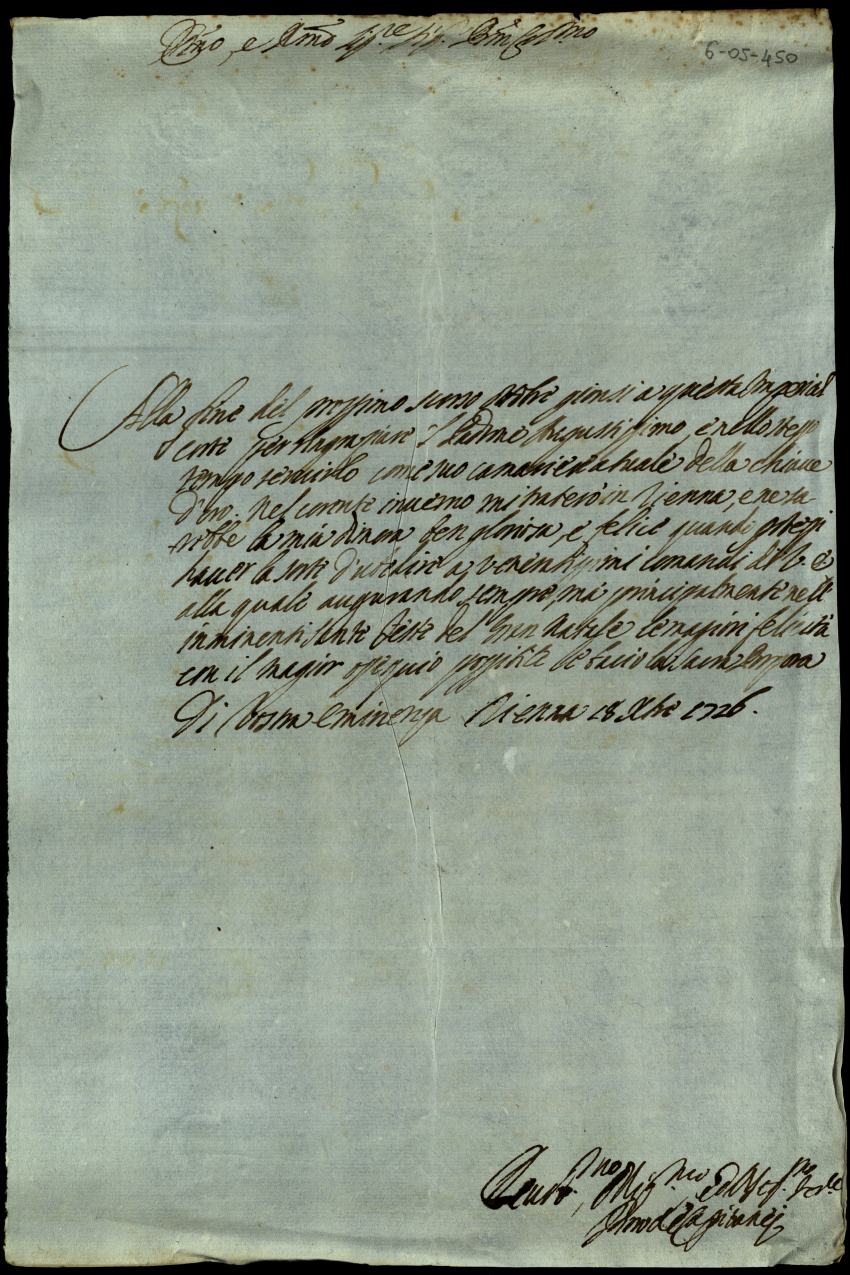 Em̃o, e Rmõ Sig.re Sig. Prñ Col.mo
6-05-450
Alla fine del prossimo scorso 8bre giunsi a questa Imperial
corte per ringraziare il Padrone Augustissimo, e nello stesso
tempo servirlo come suo camariere atuale della chiave
d'oro. Nel corente inverno mi
in Vienna, e
sarebbe la mia dimora ben gloriosa, e felice quando potessi
haver la sorte d'ubedire a, venerattissimi comandi di V. E.
alla quale augurando sempre, mà principalmente nelle
imminenti sante feste del Gran Natale le magiori felicità
con il magior ossequio le bacio la sacra Porpora
Di Vostra Eminenza Vienna 18 Xbre 1726.
Seruo